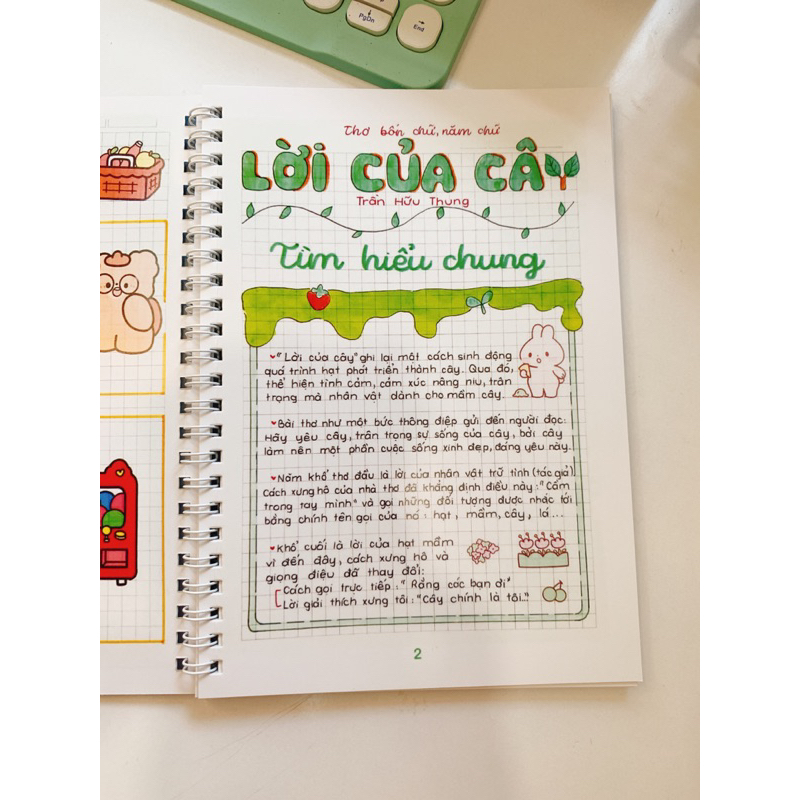 PgDn
End
Thơ bốn chữ, năm chữ
LỜI CỦA CÂY
Trần Hữu Thung
Tìm hiểu chung
"Lời của cây" ghi lại một cách sinh động
quá trình hạt phát triển thành cây. Qua đó,
thể hiện tình cảm, cảm xúc nâng niu, trân
trọng mà nhân vật dành cho mầm cây.
Bài thơ như một bức thông điệp gửi đến người đọc:
Hãy yêu cây, trân trọng sự sống của cây, bởi cây
làm nên một phần cuộc sống xinh đẹp, đáng yêu này.
Năm khổ thơ đầu là lời của nhân vật trữ tình (tác giả)
Cách xưng hô của nhà thơ đã khẳng định điều này: "Cầm
trong tay mình" và gọi những đối tượng được nhắc tới
bằng chính tên gọi của nó: hạt, mầm, cây, lá...
Khổ cuối là lời của hạt mầm
vì đến đây, cách xưng hô và
giọng điệu đã thay đổi:
Cách gọi trực tiếp: "Rằng các bạn ơi"
Lời giải thích xưng tôi: "Cây chính là tôi."
2